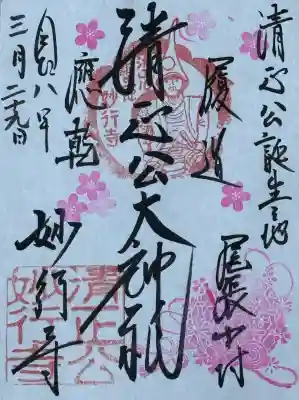 清正公誕生之地
尾張中村
履道
清正公大神祇
應乾
妙行寺
八年
三月二十九日
妙行寺
清正公
妙行寺